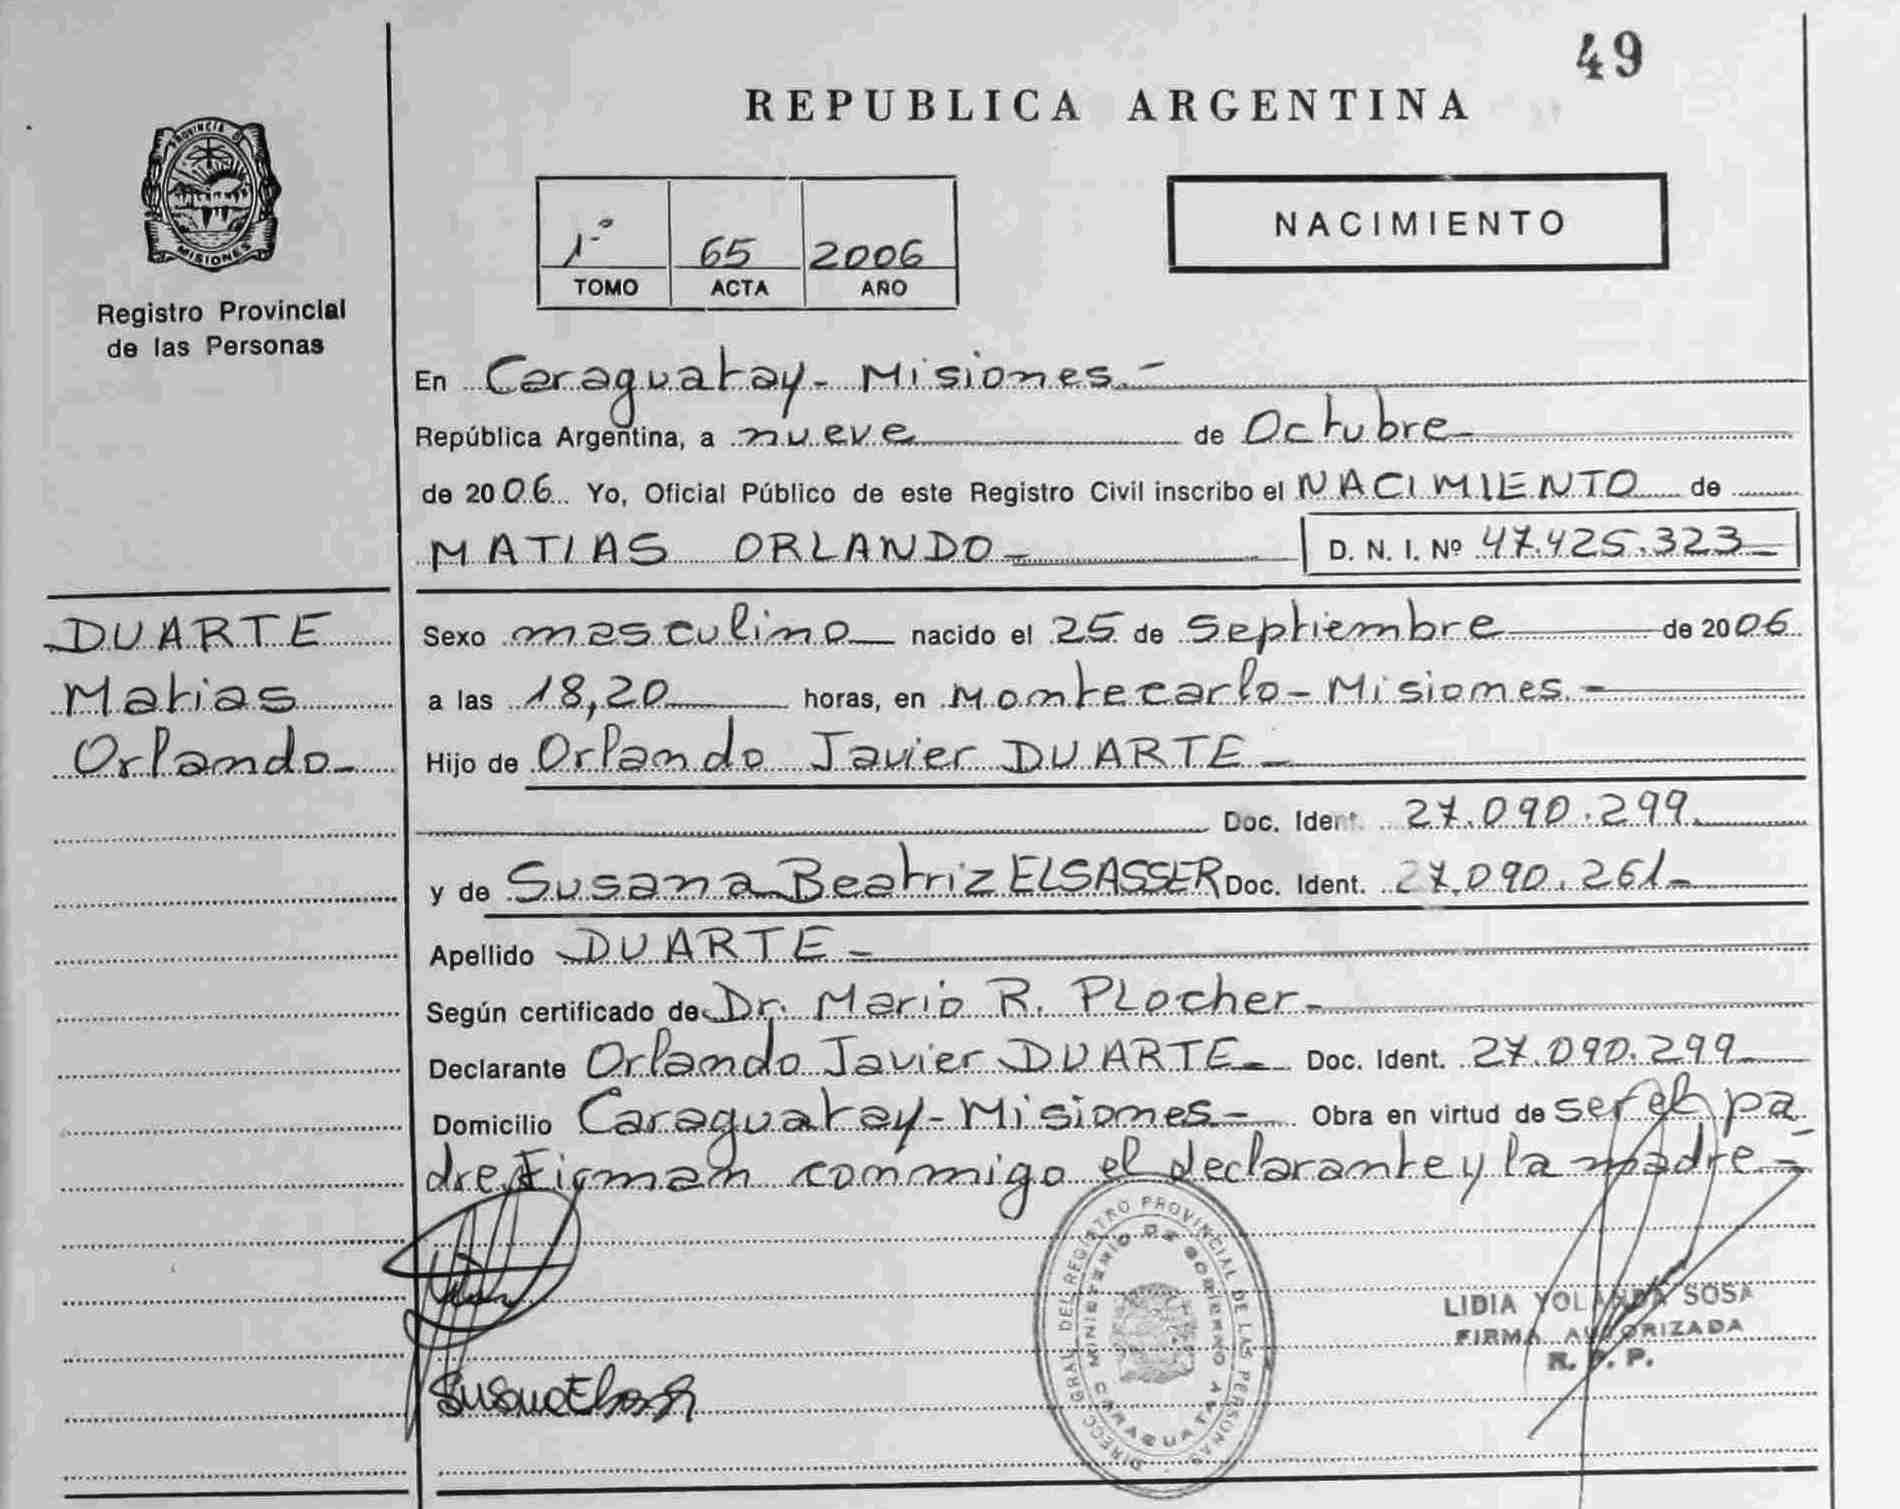 49
REPUBLICA ARGENTINA
PROVINCIA DE
MISIONES
Registro Provincial
de las Personas
1º 65 2006
TOMO ACTA AÑO
NACIMIENTO
En Caraguatay - Misiones.-
República Argentina, a nueve de Octubre
de 2006 Yo, Oficial Público de este Registro Civil inscribo el NACIMIENTO de
MATIAS ORLANDO D. N. I. Nº 47.425.323
DUARTE
Matias
Orlando
Sexo masculino nacido el 25 de Septiembre de 2006
a las 18,20 horas, en Montecarlo - Misiones.-
Hijo de Orlando Javier DUARTE
Doc. Ident. 27.090.299
y de Susana Beatriz ELSASSER Doc. Ident. 27.090.261
Apellido DUARTE
Según certificado de Dr. Mario R. PLocher
Declarante Orlando Javier DUARTE Doc. Ident. 27.090.299
Domicilio Caraguatay - Misiones Obra en virtud de ser el pa
dre Firman conmigo el declarante y la madre
DIRECC. GRAL. DEL REGISTRO PROVINCIAL DE LAS PERSONAS
MINISTERIO DE GOBIERNO
LIDIA YOLANDA SOSA
FIRMA AUTORIZADA
R. P. P.